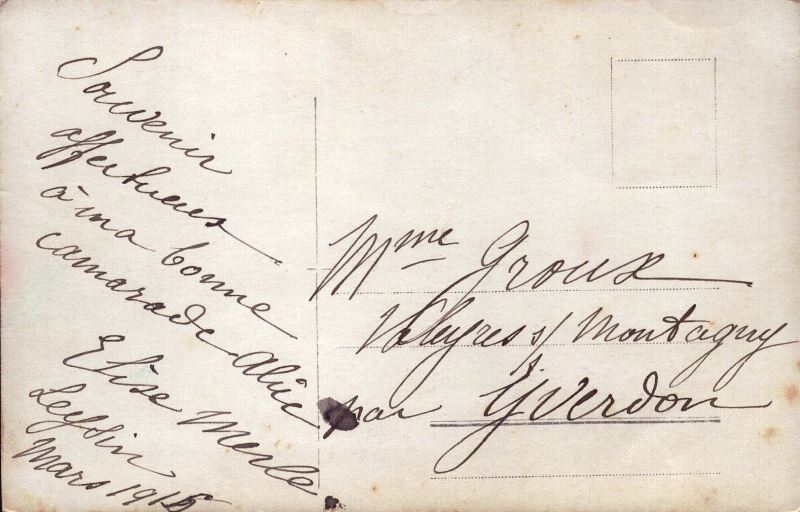 Souvenir
affectueux
à ma bonne
camarade Alice
Elise Merle
Leysin
Mars 1915
Mme Groux
Valeyres s/ Montagny
par Yverdon